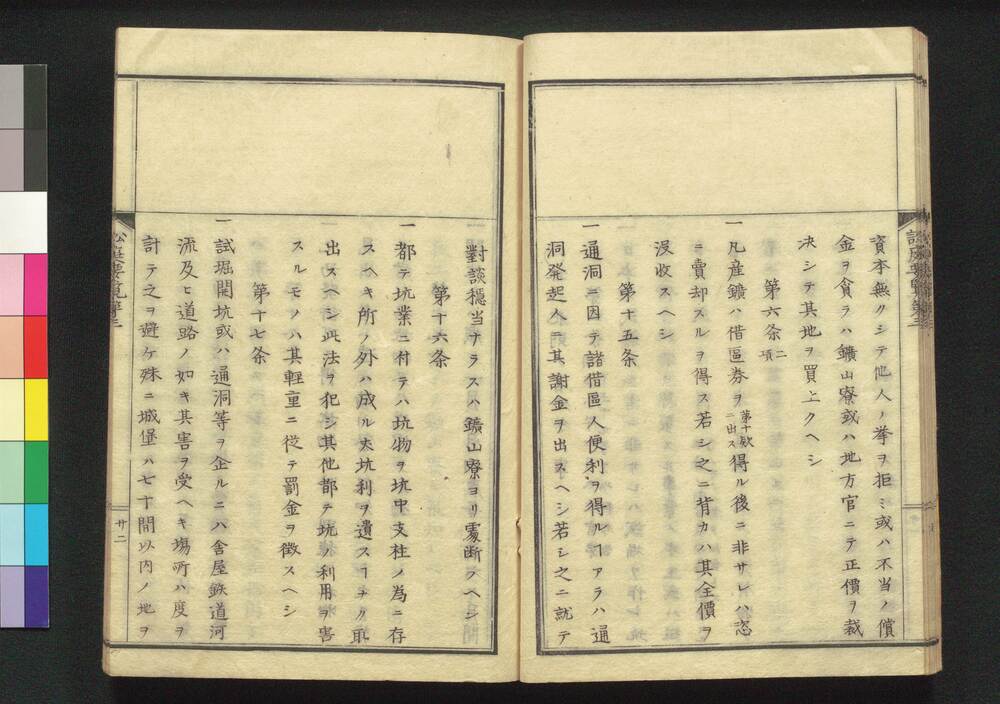 資本無クシテ他人ノ挙ヲ拒ミ或ハ不当ノ償
金ヲ貪ラハ鑛山寮或ハ地方官ニテ正價ヲ裁
决シテ其地ヲ買上クヘシ
第六条二項
一凡産鑛ハ借區券ヲ第十欵ニ出ス得ル後ニ非サレハ恣
ニ賣却スルヲ得ス若シ之ニ背カハ其全價ヲ
没收スヘシ
第十五条
一通洞ニ因テ諸借區人便利ヲ得ルヿアラハ通
洞発起人ニ其謝金ヲ出スヘシ若シ之ニ就テ
對談穏当ナラスハ鑛山寮ヨリ處断スヘシ
第十六条
一都テ坑業ニ付テハ坑物ヲ坑中支柱ノ為ニ存
スヘキ所ノ外ハ成ル太坑利ヲ遺スヿナク取
出スヘシ此法ヲ犯シ其他都テ坑ノ利用ヲ害
スルモノハ其輕重ニ從テ罰金ヲ徴スヘシ
第十七条
一試堀開坑或ハ通洞等ヲ企ルニハ舎屋鉄道河
流及ヒ道路ノ如キ其害ヲ受ヘキ塲所ハ度ヲ
計テ之ヲ避ケ殊ニ城堡ハ七十間以内ノ地ヲ
廿二